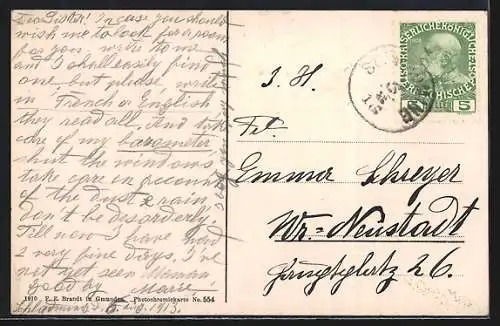 Dear Sister! In case you should
wish me to look for a room
for you, write to me
and I shall easily find
one but please, write
in French or English
they read all. And take
care of my barometer
shut the windows
take care in account
of the dust & rain,
don't be disorderly.
Till now I have had
2 very fine days. I've
not yet seen
good by Marie!
6. 1913.
1910 P. E. Brandt in Gmunden. Photochromiekarte No. 554
KAISERLICHE KÖNIGLICHE
5
S. H.
Frl.
Emma Schreyer
Wr.-Neustadt
26.